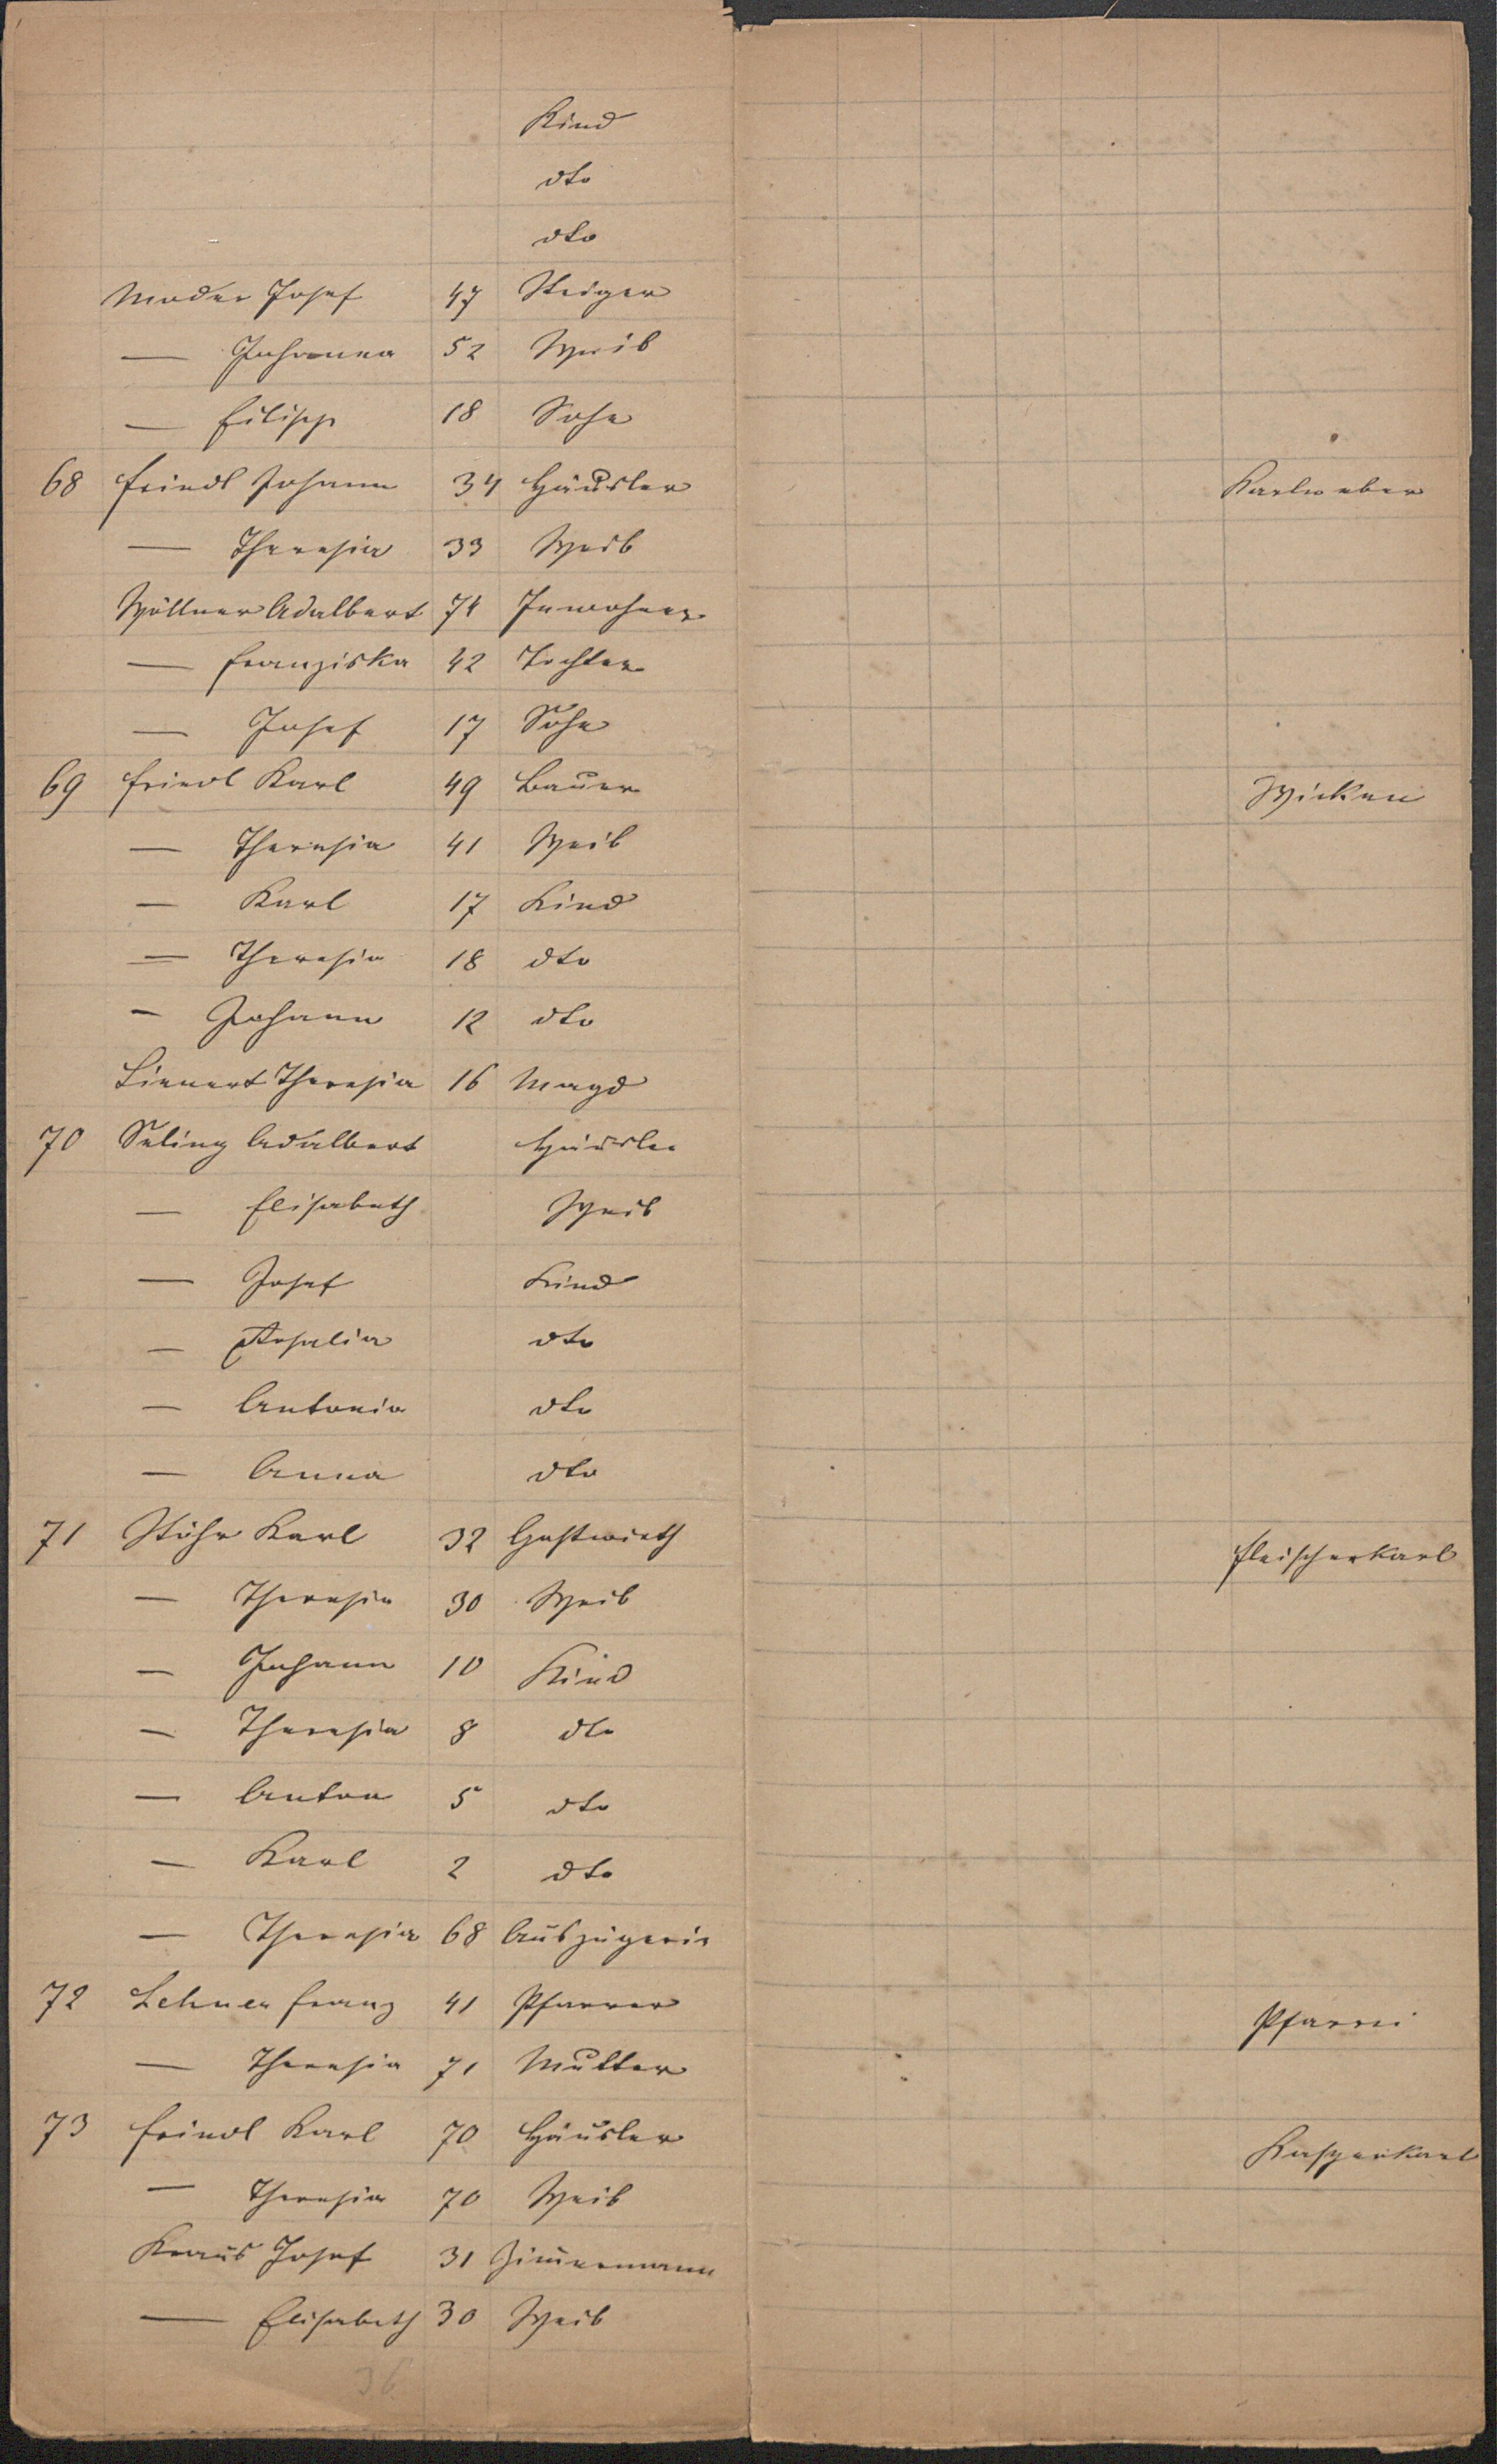 Kind
dto
dto
Moder Josef 47 Steiger
— Johanna 52 Weib
— Filipp 18 Sohn
68 Friedl Johann 34 Häusler Karlweber
— Theresia 33 Weib
Wöllner Adalbert 74 Inwohner
— Franziska 42 Tochter
— Josef 17 Sohn
69 Friedl Karl 49 Bauer Wicken
— Theresia 41 Weib
— Karl 17 Kind
— Theresia 18 dto
— Johann 12 dto
Lienert Theresia 16 Magd
70 Seling Adalbert Häusler
— Elisabeth Weib
— Josef Kind
— Rosalia dto
— Antonia dto
— Anna dto
71 Stöhr Karl 32 Gastwirth Fleischerkarl
— Theresia 30 Weib
— Johann 10 Kind
— Theresia 8 dto
— Anton 5 dto
— Karl 2 dto
— Theresia 68 Auszügerin
72 Lehner Franz 41 Pfarrer Pfarrei
— Theresia 71 Mutter
73 Friedl Karl 70 Häusler Kasperkarl
— Theresia 70 Weib
Kraus Josef 31 Zimmermann
— Elisabeth 30 Weib
36